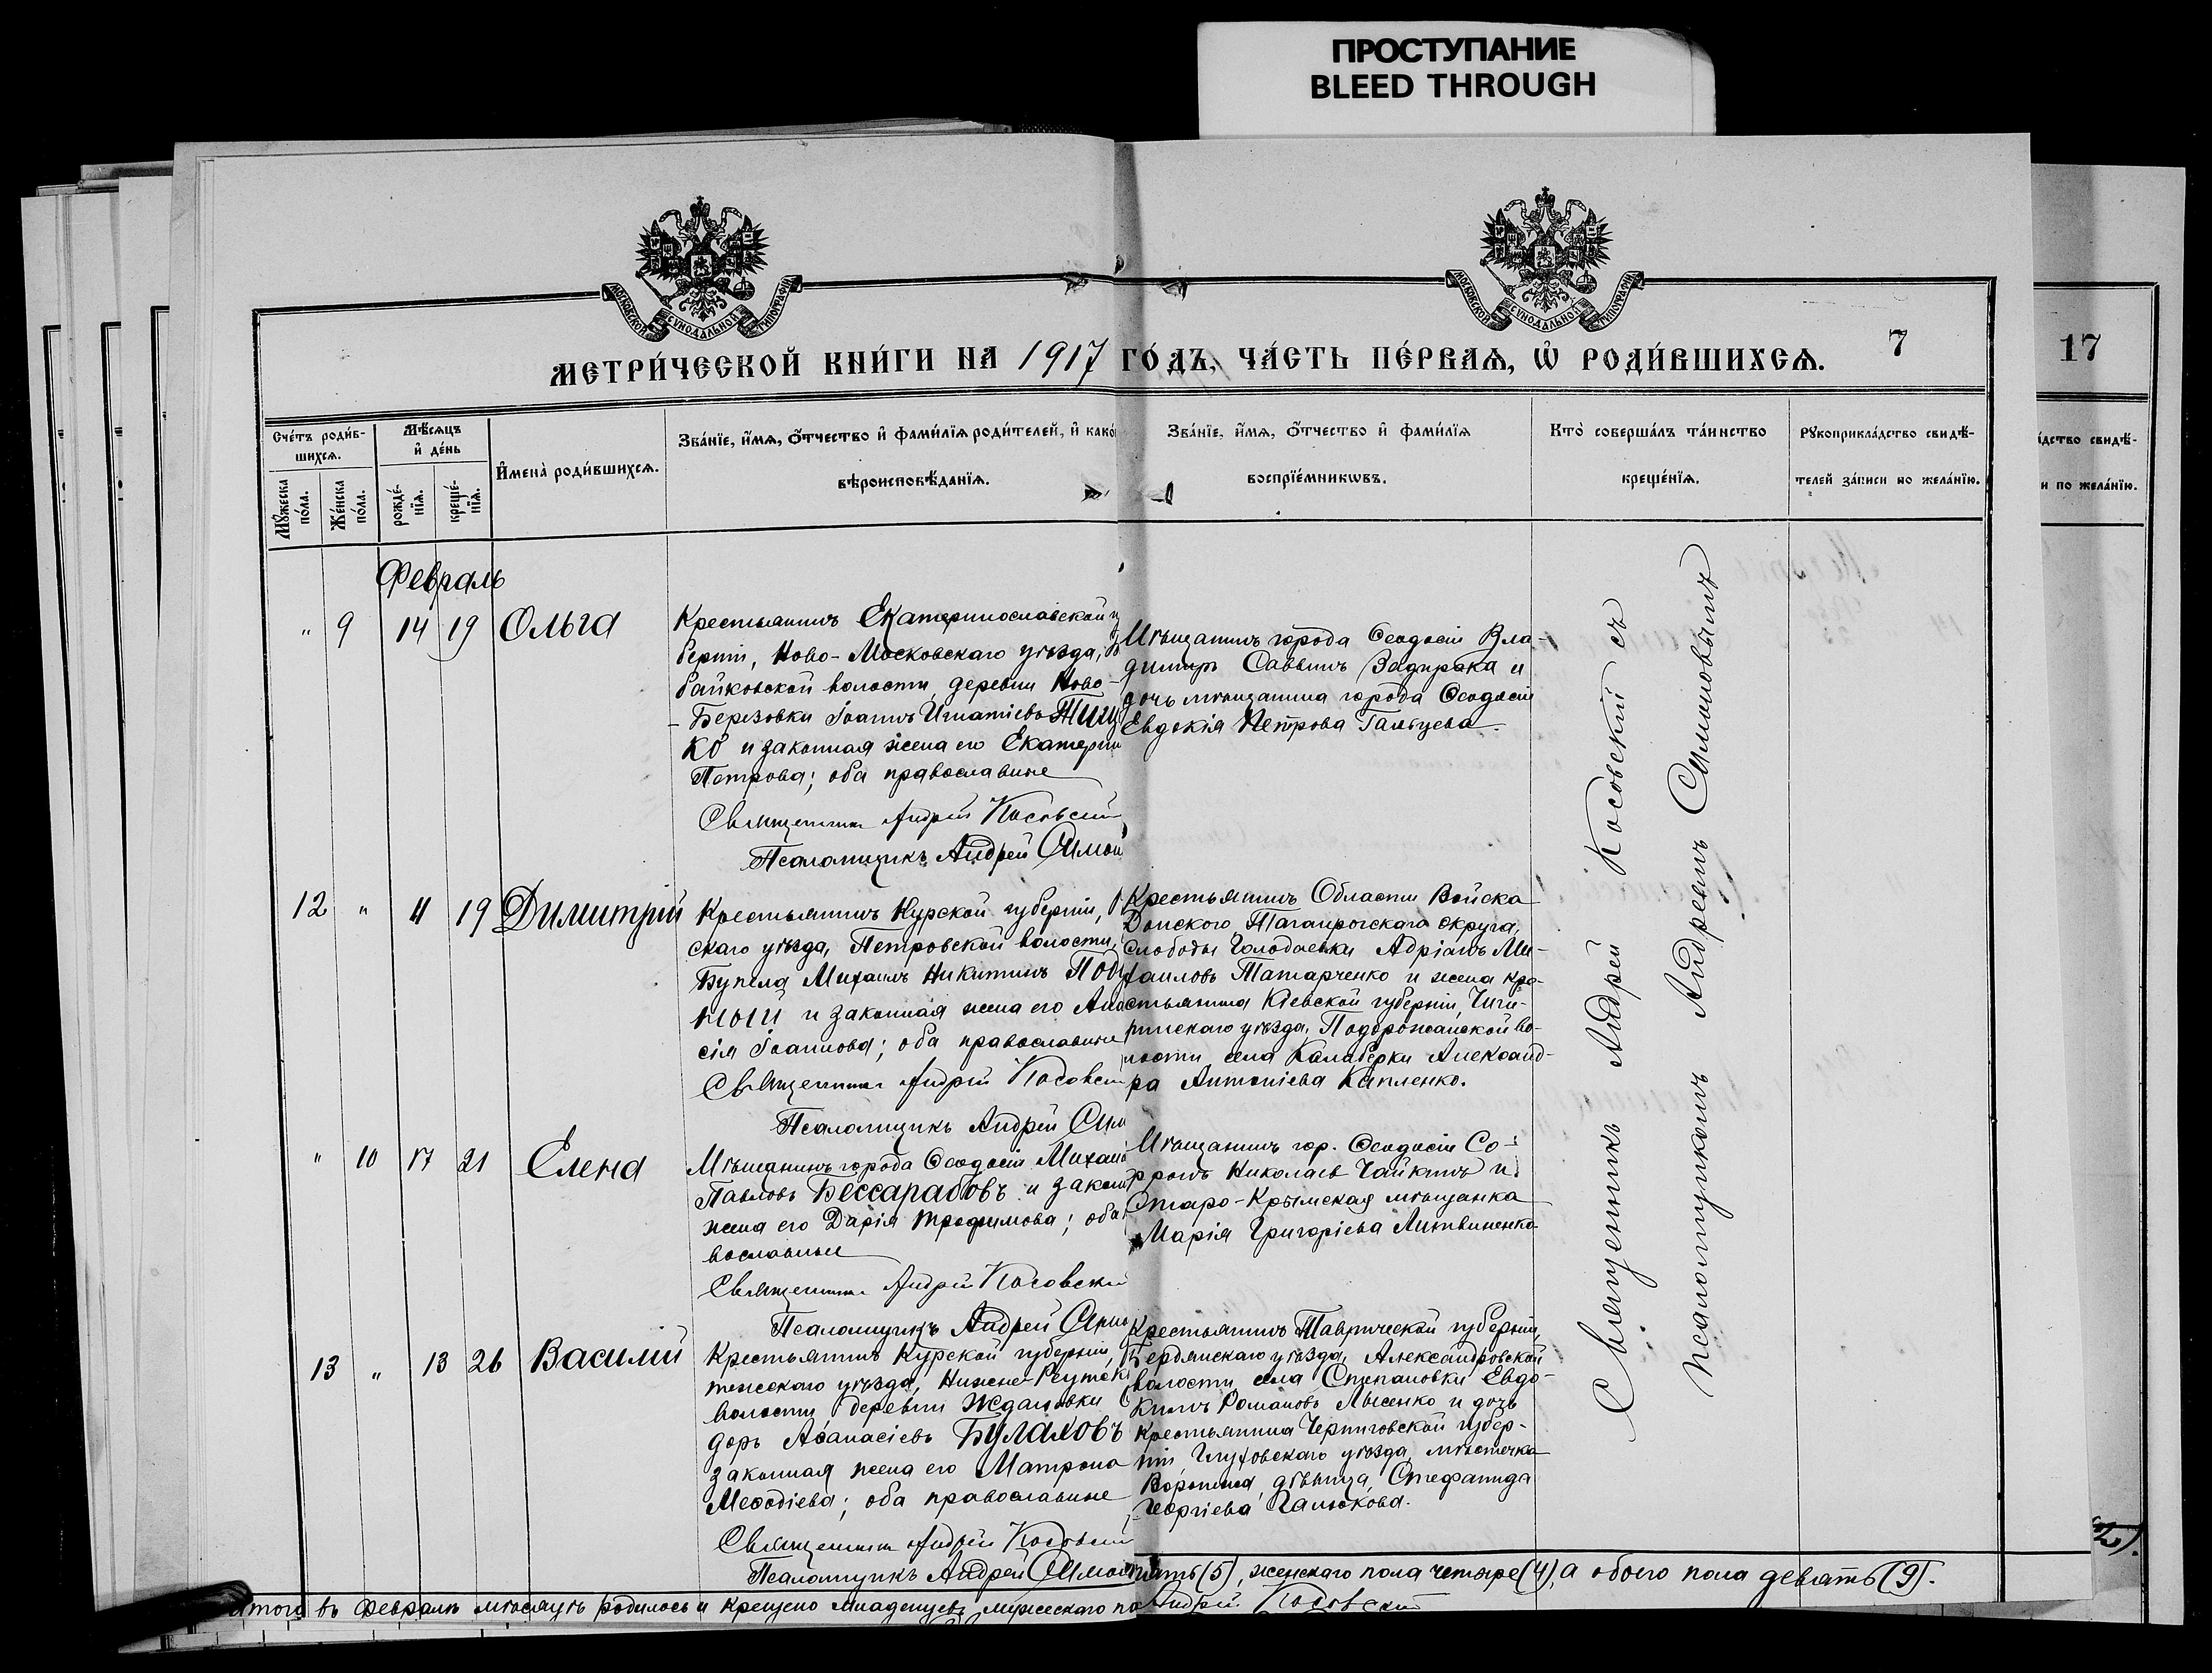 ПРОСТУПАНИЕ
BLEED THROUGH
МОСКОВСКОЙ СУНОДАЛЬНОЙ ТИПОГРАФІИ
МОСКОВСКОЙ СУНОДАЛЬНОЙ ТИПОГРАФІИ
МЕТРИ́ЧЕСКОЙ КНИ́ГИ НА 1917 ГО́ДЪ, ЧА́СТЬ ПЕ́РВАѦ, Ѡ҆ РОДИ́ВШИХСѦ.
7
17
Сче́тъ роди́в-
шихсѧ.
Мѣ́сѧцъ
и҆ де́нь
Мꙋ́жеска
по́ла.
Же́нска
по́ла.
рожде́-
нїѧ.
креще́-
нїѧ.
И҆мена̀ роди́вшихсѧ.
Зва́нїе, и҆́мѧ, ѻ҆́тчество и҆ фами́лїѧ роди́телей, и҆ како́
вѣроисповѣ́данїѧ.
Зва́нїе, и҆́мѧ, ѻ҆́тчество и҆ фами́лїѧ
воспрїе́мникѡвъ.
Кто̀ соверша́лъ та́инство
креще́нїѧ.
Рꙋкоприкла́дство свидѣ́-
телей за́писи по жела́нїю.
а́дство свидѣ́-
и по жела́нїю.
Февраль
" 9 14 19 Ольга
Крестьянинъ Екатеринославской гу
берніи, Ново-Московскаго уѣзда,
байковской волости, деревни Ново-
-Березовки Іоаннъ Игнатіевъ
ко и законная жена его Екатерин
Петрова; оба православные
Священникъ Андрей Косовскій
Псаломщикъ Андрей Симон
Мѣщанинъ города Ѳеодосіи Вла-
димиръ Саввинъ Задирака и
дочь мѣщанина города Ѳеодосіи
Евдокія Петрова Гальцева.
12 " 11 19 Димитрій
Крестьянинъ Курской губерніи,
скаго уѣзда, Петровской волости,
Михаилъ Никитинъ Под
ный и законная жена его Ана
сія Іоаннова; оба православные
Священникъ Андрей Косовскі
Псаломщикъ Андрей Сим
Крестьянинъ Области Войска
Донского, Таганрогскаго округа,
слободы Голодаевки Адріанъ Ми-
хаиловъ Татарченко и жена кре-
стьянина Кіевской губерніи, Чиги-
ринскаго уѣзда, Подорожанской во-
лости, села Калаберки Александ-
ра Антоніева Капленко.
" 10 17 21 Елена
Мѣщанинъ города Ѳеодосіи Михаи
Павловъ Бессарабовъ и закон
жена его Дарія Трофимова; оба
вославные
Священникъ Андрей Косовскі
Псаломщикъ Андрей Симо
Мѣщанинъ гор. Ѳеодосіи Со-
фронъ Николаевъ Чайкинъ и
Старо-Крымская мѣщанка
Марія Григоріева Литвиненко
13 " 13 26 Василій
Крестьянинъ Курской губерніи,
тежскаго уѣзда, Нижне-Реутск
волости, деревни Ждановки
доръ Аѳанасіевъ Булаховъ
законная жена его Матрона
Меѳодіева; оба православные
Священникъ Андрей Косовскій
Псаломщикъ Андрей Симон
Крестьянинъ Таврической губерніи,
Бердянскаго уѣзда, Александровской
волости, села Степановки Евдо-
кимъ Романовъ Лысенко и дочь
крестьянина Черниговской губер-
ніи, Глуховскаго уѣзда, мѣстечка
Воронежа, дѣвица Стефанида
Георгіева Галюкова.
Священникъ Андрей Косовскій съ
псаломщикомъ Андреемъ Симоновымъ
Итого въ Февралѣ мѣсяцѣ родилось и крещено младенцевъ мужескаго по
пять (5), женскаго пола четыре (4), а обоего пола девять (9).
Андрей Косовскій